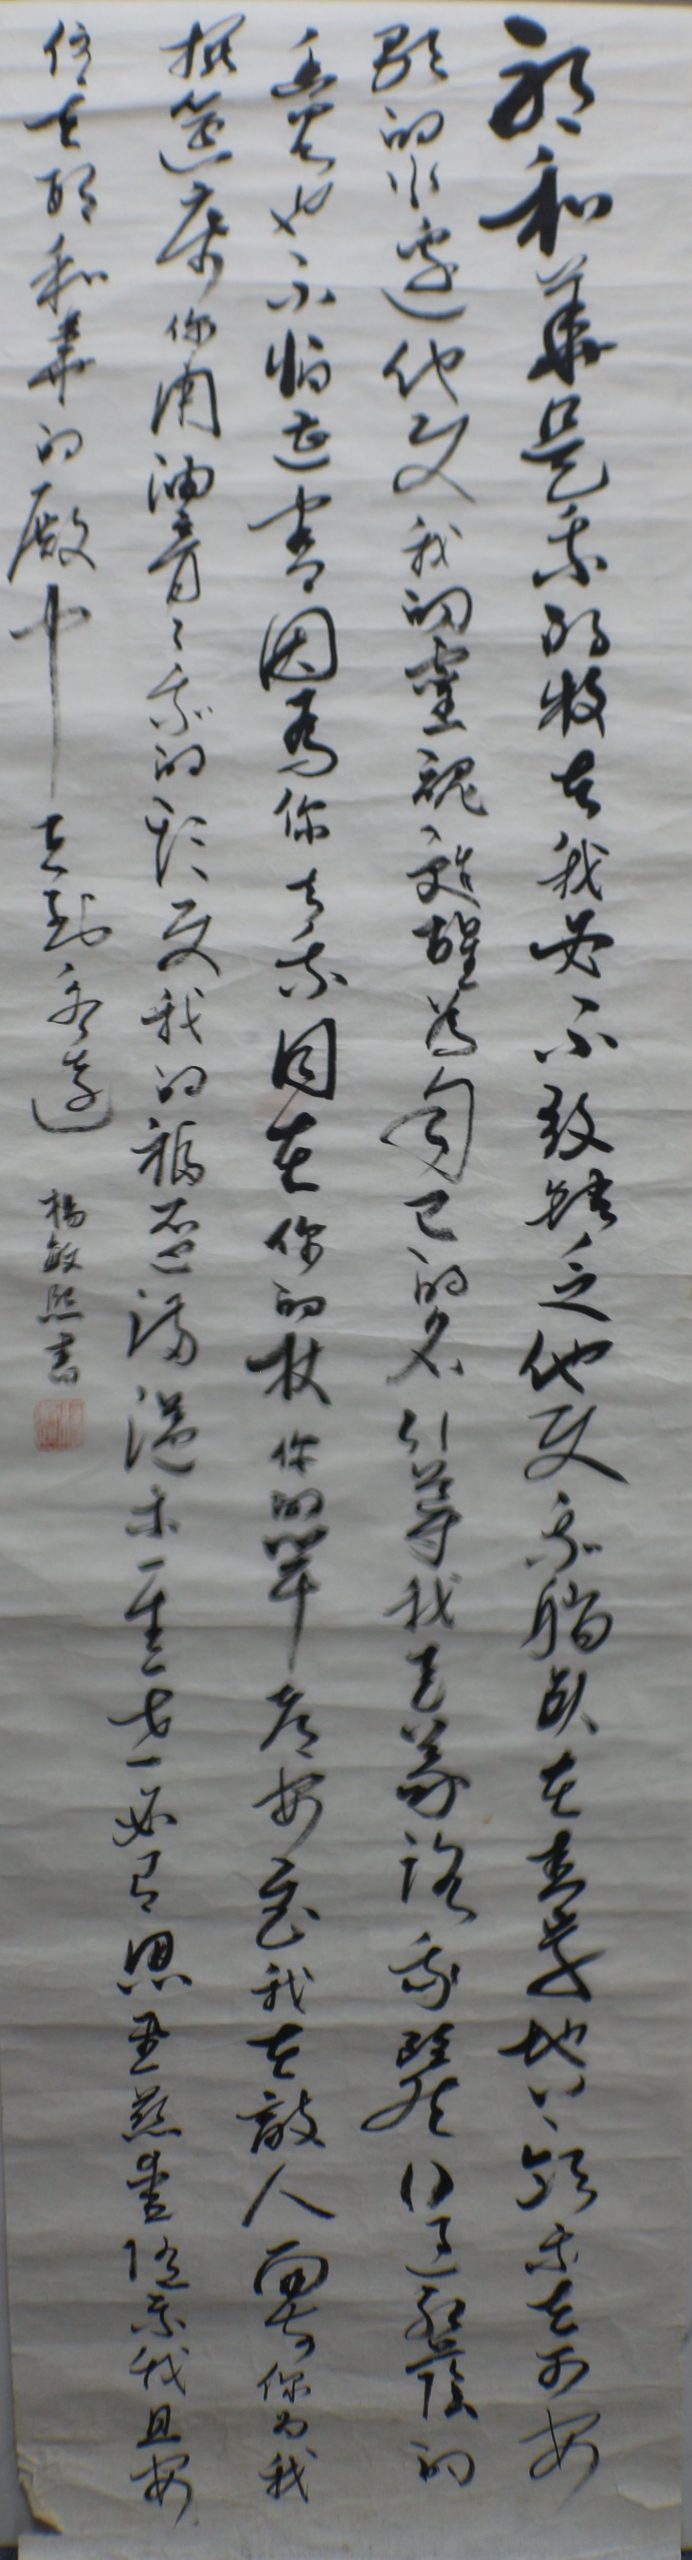 耶和華是我的牧者我必不致缺乏他使我躺臥在青草地上領我在可安
歇的水邊他使我的靈魂甦醒為自己的名引導我走義路我雖然行過死蔭的
幽谷也不怕遭害因為你與我同在你的杖你的竿都安慰我在敵人面前你為我
擺筵席你用油膏了我的頭使我的福杯滿溢我一生一世必有恩惠慈愛隨我我且要
住在耶和華的殿中直到永遠
楊敏熙書